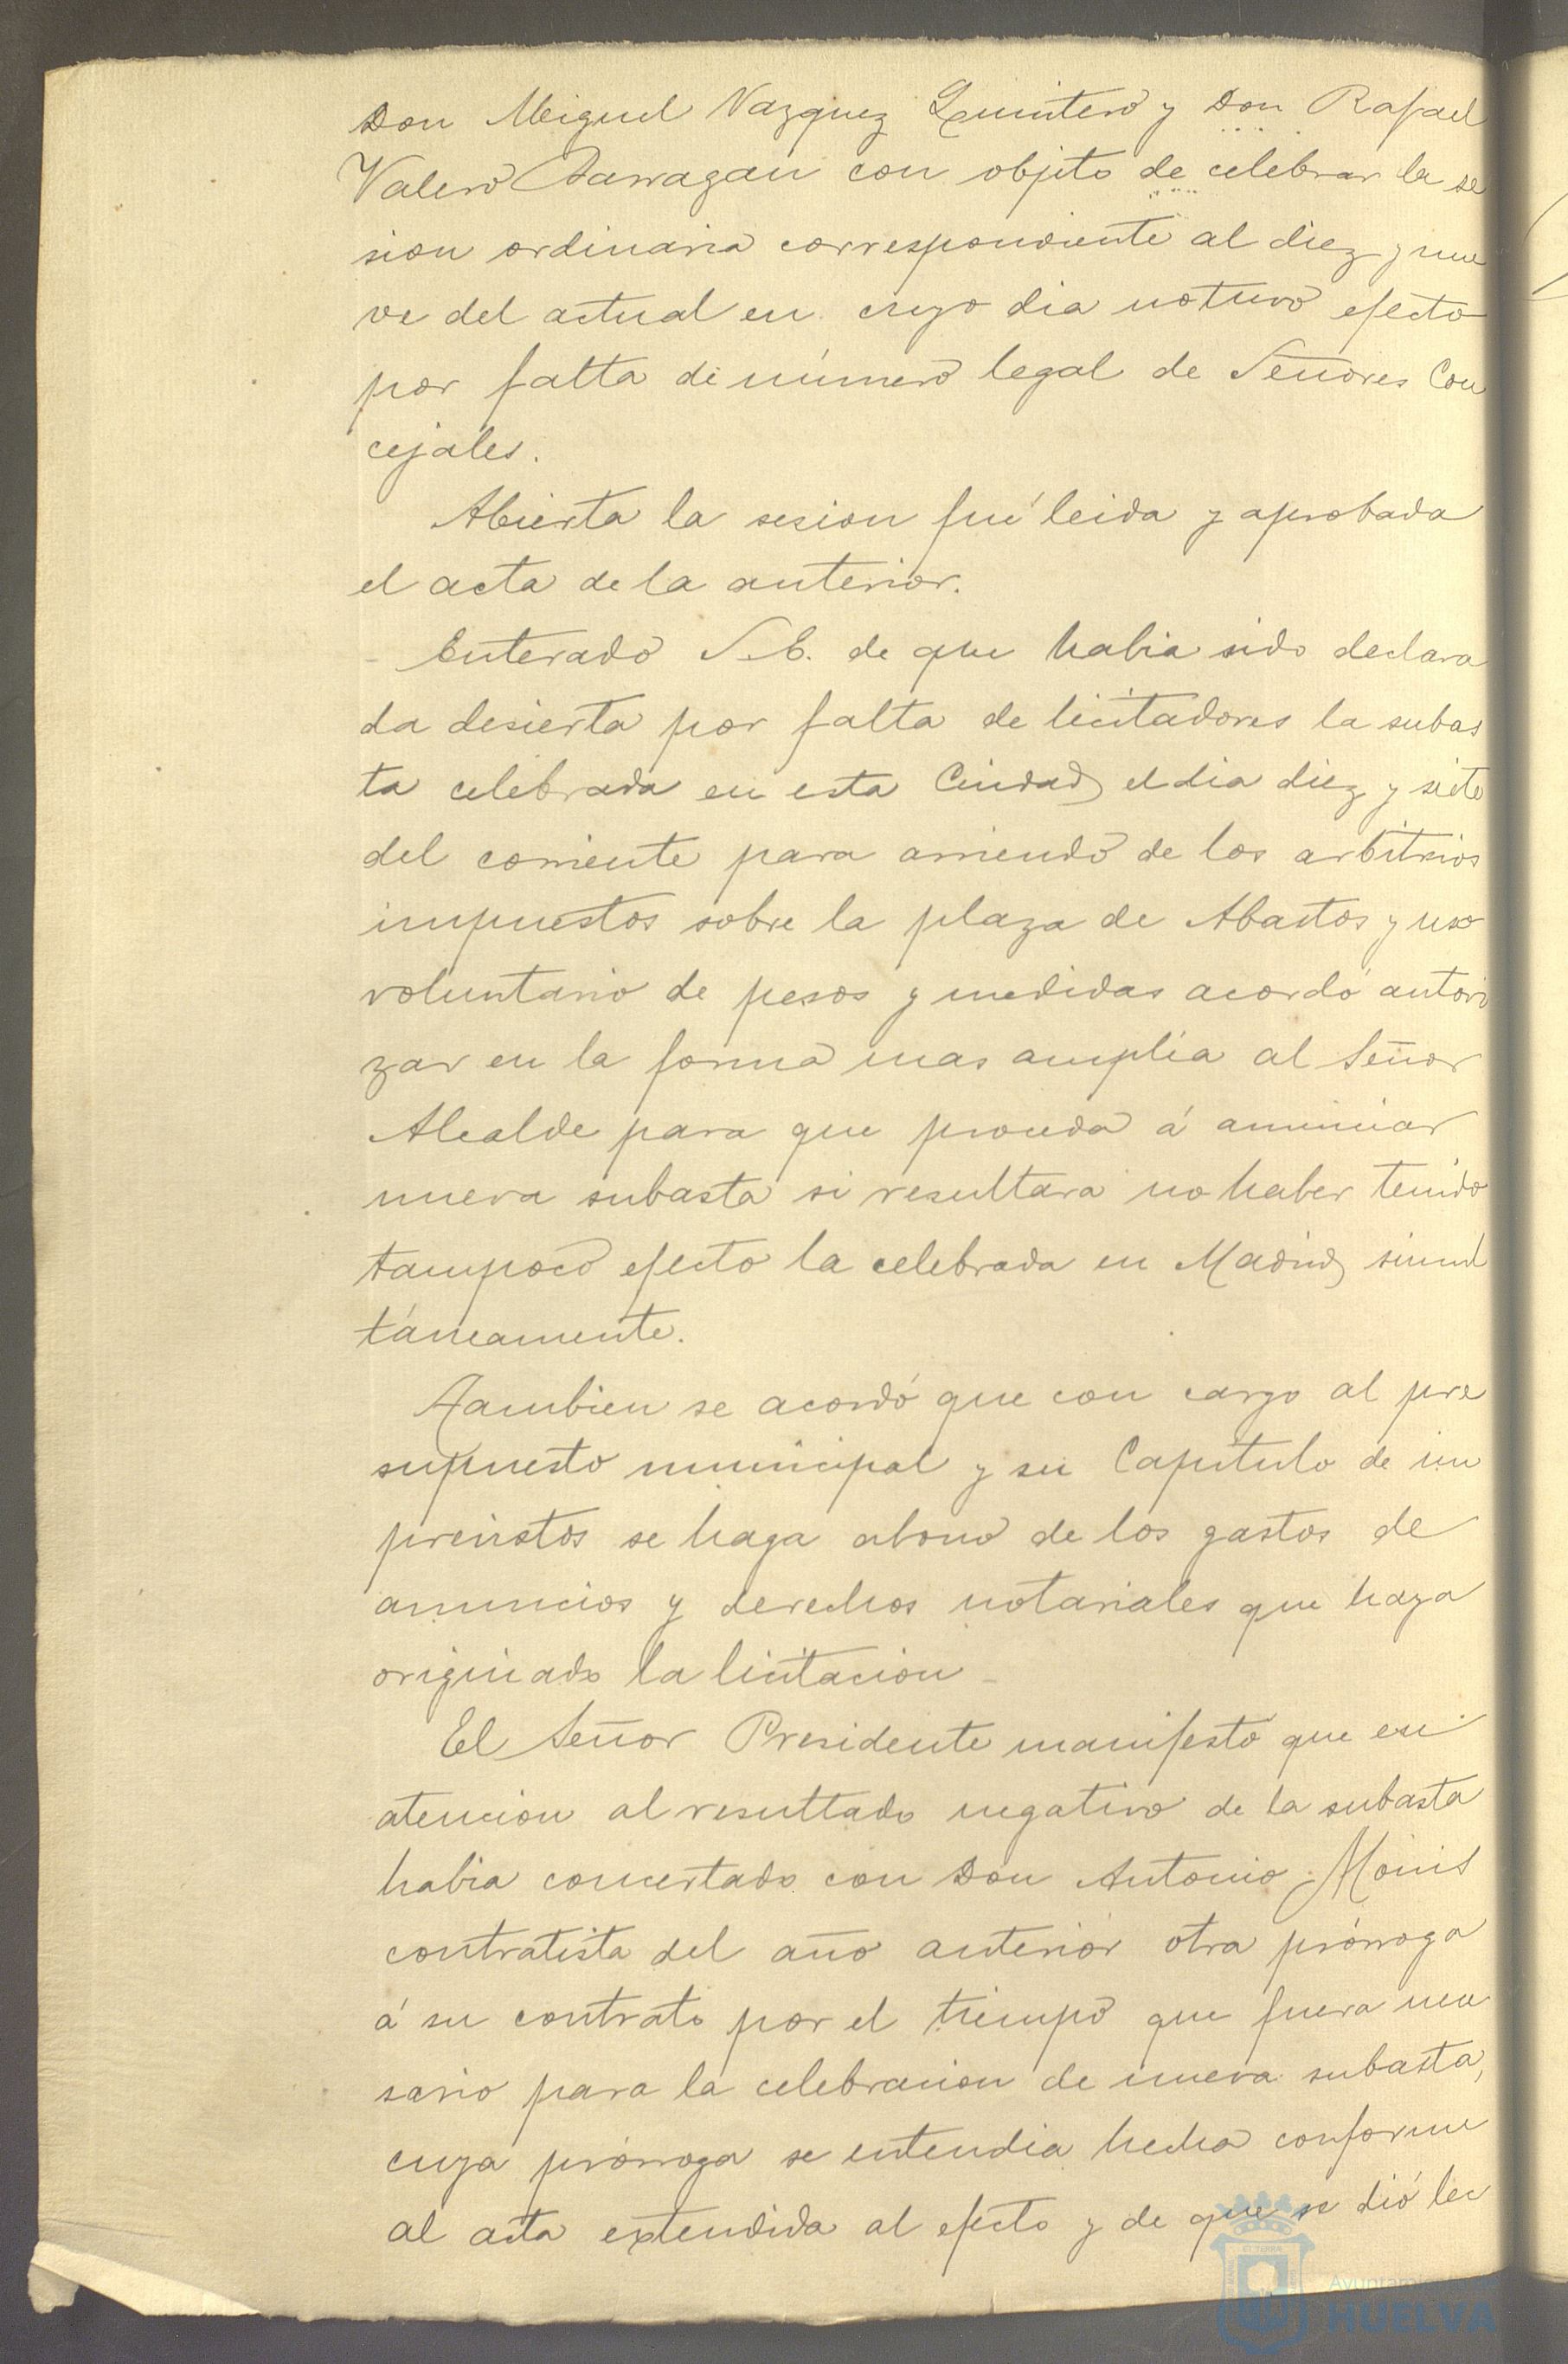 Don Miguel Vazquez Quintero y Don Rafael
Valero Barragan con objeto de celebrar la se
sion ordinaria correspondiente al diez y nue
ve del actual en cuyo dia no tuvo efecto
por falta de número legal de Señores Con
cejales.
Abierta la sesion fué leida y aprobada
el acta de la anterior.
Enterado S.E. de que habia sido declara
da desierta por falta de licitadores la subas
ta celebrada en esta Ciudad el dia diez y siete
del corriente para arriendo de los arbitrios
impuestos sobre la plaza de Abastos y uso
voluntario de pesos y medidas acordó autori
zar en la forma mas amplia al Señor
Alcalde para que proceda á anunciar
nueva subasta si resultara no haber tenido
tampoco efecto la celebrada en Madrid simul
táneamente.
Tambien se acordó que con cargo al pre
supuesto municipal y su Capitulo de im
previstos se haga abono de los gastos de
anuncios y derechos notariales que haya
originado la licitacion
El Señor Presidente manifestó que en
atencion al resultado negativo de la subasta
habia concertado con Don Antonio Monis
contratista del año anterior otra prórroga
á su contrato por el tiempo que fuera nece
sario para la celebracion de nueva subasta,
cuya prórroga se entendia hecha conforme
al acta extendida al efecto y de que se dió lec
Ayuntamiento de
HUELVA